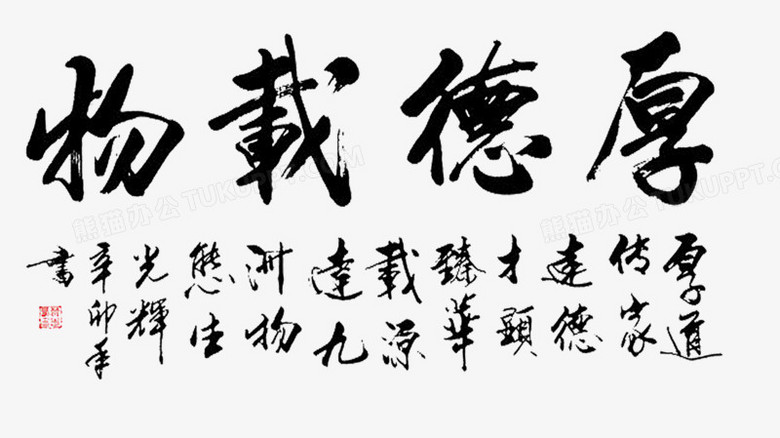 厚德載物
厚道
傳家
達德
才顯
臻華
載源
達九
洲物
態生
光輝
辛卯年
書
熊猫办公 TUKUPPT.COM
熊猫办公 TUKUPPT.COM